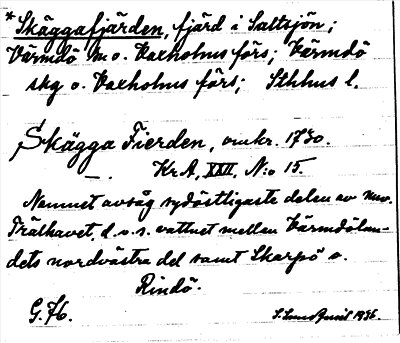 * Skäggafjärden, fjärd i Saltsjön;
Värmdö m. o. Vaxholms förs; Värmdö
skg o. Vaxholms förs; Sthlms l.
Skägga Fierden, omkr. 1730.
KrA, XXII, N:o 15.
Namnet avsåg sydöstligaste delen av nuv.
Trälhavet, d.v.s. vattnet mellan Värmdölan-
dets nordvästra del samt Skarpö o.
Rindö.
G. Hg.
1936.